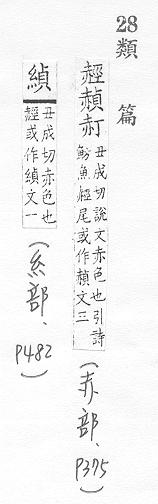 28類篇
䞓赬𧹛丑成切說文赤色也引詩
魴魚䞓尾或作赬文三
(赤部、P375)
縝丑成切赤色也
䞓或作縝文一
(糸部、P482)